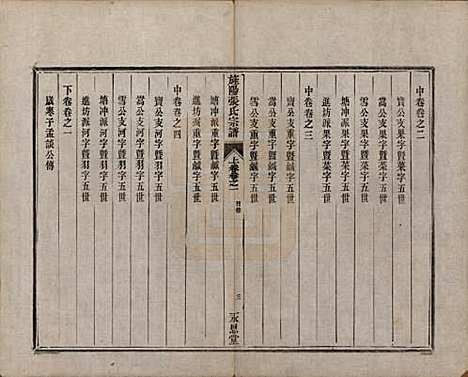 中卷卷之二
寶公支果字暨菜字五世
當公支果字暨菜字五世
雪公支果字暨菜字五世
塘冲派果字暨菜字五世
進坊派果字暨菜字五世
中卷卷之三
寶公支重字暨鹹字五世
當公支重字暨鹹字五世
雪公支重字暨鹹字五世
旌陽張氏宗譜
上卷卷之一
三
永思堂
塘冲派重字暨鹹字五世
進坊派重字暨鹹字五世
中卷卷之四
寶公支河字暨羽字五世
當公支河字暨羽字五世
雪公支河字暨羽字五世
塘冲派河字暨羽字五世
進坊派河字暨羽字五世
下卷卷之一
歲寒子孟談公傳